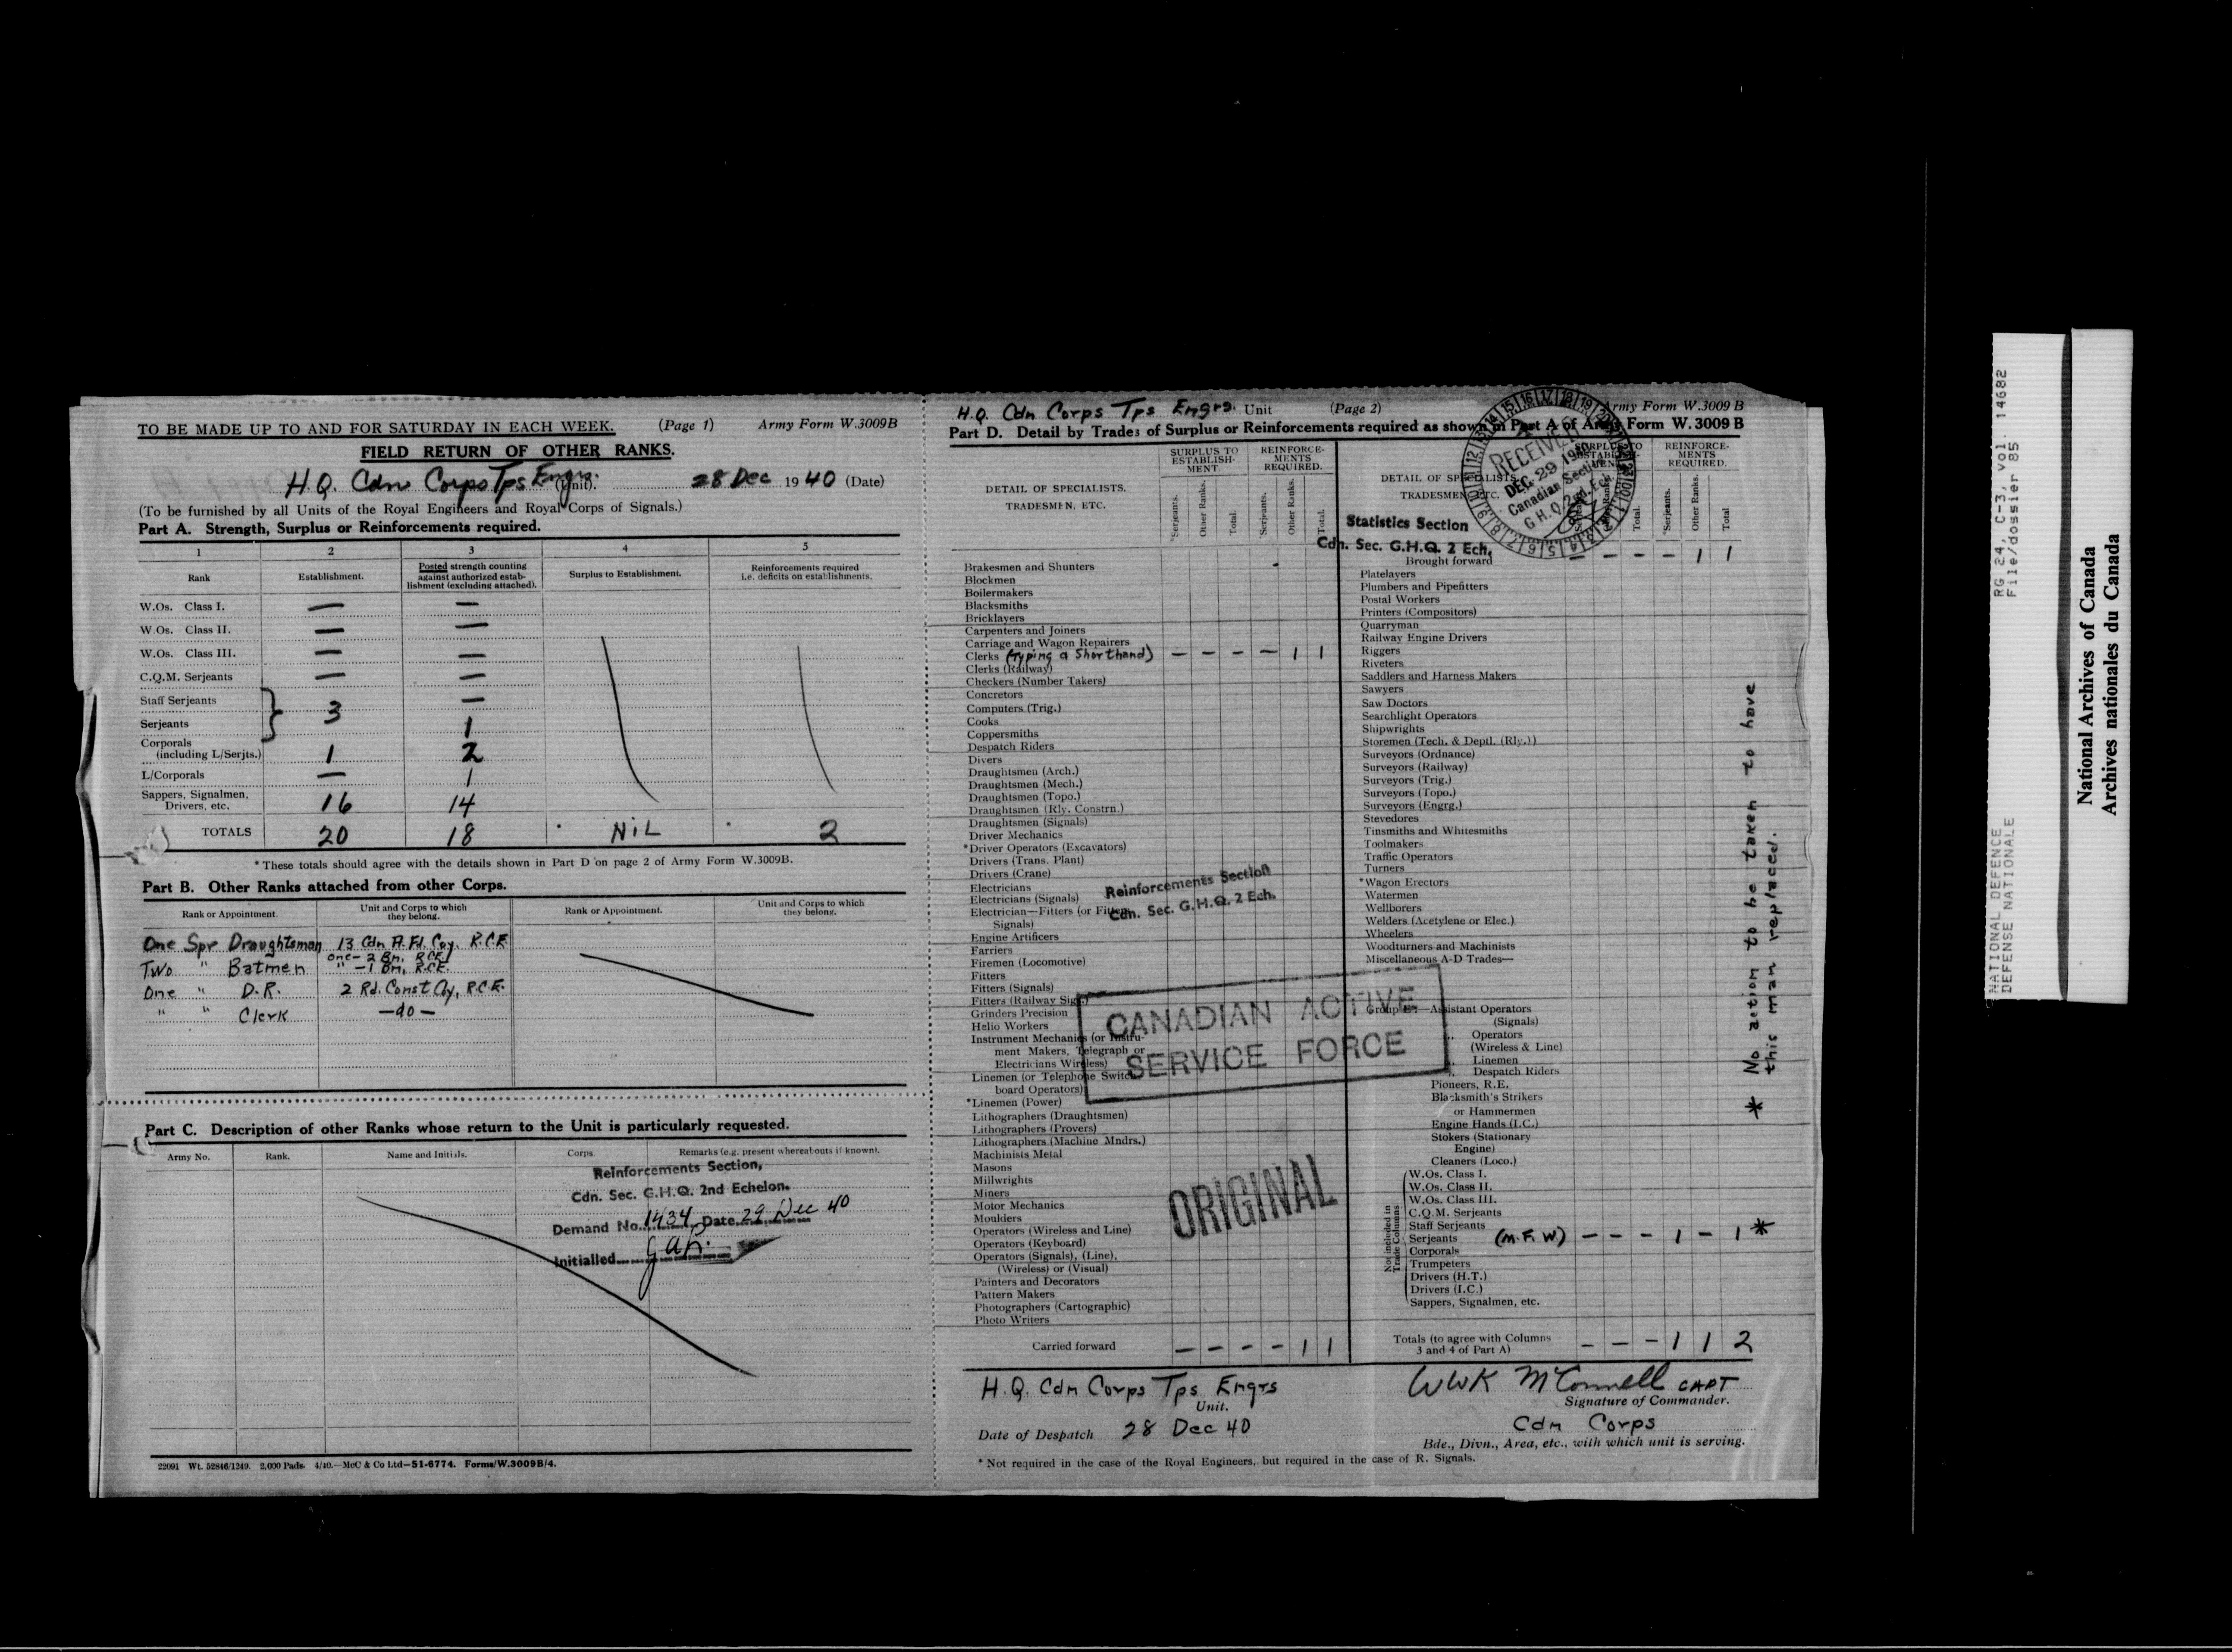 TO BE MADE UP TO AND FOR SATURDAY IN EACH WEEK. (Page 1) Army Form W.3009B
FIELD RETURN OF OTHER RANKS.
H.Q. Cdn Corps Tps Engrs. (Unit). 28 Dec 1940 (Date)
(To be furnished by all Units of the Royal Engineers and Royal Corps of Signals.)
Part A. Strength, Surplus or Reinforcements required.
1 2 3 4 5
Rank Establishment. Posted strength counting against authorized establishment (excluding attached). Surplus to Establishment. Reinforcements required i.e. deficits on establishments.
W.Os. Class I. — —
W.Os. Class II. — —
W.Os. Class III. — —
C.Q.M. Serjeants — —
Staff Serjeants —
Serjeants } 3 1
Corporals (including L/Serjts.) 1 2
L/Corporals — 1
Sappers, Signalmen, Drivers, etc. 16 14
TOTALS 20 18 NIL 2
* These totals should agree with the details shown in Part D on page 2 of Army Form W.3009B.
Part B. Other Ranks attached from other Corps.
Rank or Appointment. Unit and Corps to which they belong. Rank or Appointment. Unit and Corps to which they belong.
One Spr Draughtsman 13 Cdn A.Fd. Coy. R.C.E.
Two " Batmen One - 2 Bn. R.C.E.
" - 1 Bn. R.C.E.
One " D.R. 2 Rd. Const Coy, R.C.E.
" " Clerk — do —
Part C. Description of other Ranks whose return to the Unit is particularly requested.
Army No. Rank. Name and Initials. Corps Remarks (e.g. present whereabouts if known).
Reinforcements Section,
Cdn. Sec. G.H.Q. 2nd Echelon.
Demand No. 1434 Date 29 Dec 40
Initialled
22091 Wt. 52846/1249. 2,000 Pads. 4/40.—McC & Co Ltd—51-6774. Forms/W.3009B/4.
H.Q. Cdn Corps Tps Engrs. Unit (Page 2) Army Form W.3009 B
Part D. Detail by Trades of Surplus or Reinforcements required as shown in Part A of Army Form W. 3009 B
DETAIL OF SPECIALISTS, TRADESMEN, ETC.
SURPLUS TO ESTABLISHMENT.
REINFORCEMENTS REQUIRED.
*Serjeants. Other Ranks. Total. Serjeants. Other Ranks. Total.
Brakesmen and Shunters
Blockmen
Boilermakers
Blacksmiths
Bricklayers
Carpenters and Joiners
Carriage and Wagon Repairers
Clerks (Typing & Shorthand) — — — — 1 1
Clerks (Railway)
Checkers (Number Takers)
Concretors
Computers (Trig.)
Cooks
Coppersmiths
Despatch Riders
Divers
Draughtsmen (Arch.)
Draughtsmen (Mech.)
Draughtsmen (Topo.)
Draughtsmen (Rly. Constrn.)
Draughtsmen (Signals)
Driver Mechanics
*Driver Operators (Excavators)
Drivers (Trans. Plant)
Drivers (Crane)
Electricians
Electricians (Signals)
Electrician—Fitters (or Fitters Signals)
Engine Artificers
Farriers
Firemen (Locomotive)
Fitters
Fitters (Signals)
Fitters (Railway Sig.)
Grinders Precision
Helio Workers
Instrument Mechanics (or Instrument Makers, Telegraph or Electricians Wireless)
Linemen (or Telephone Switchboard Operators)
*Linemen (Power)
Lithographers (Draughtsmen)
Lithographers (Provers)
Lithographers (Machine Mndrs.)
Machinists Metal
Masons
Millwrights
Miners
Motor Mechanics
Moulders
Operators (Wireless and Line)
Operators (Keyboard)
Operators (Signals), (Line), (Wireless) or (Visual)
Painters and Decorators
Pattern Makers
Photographers (Cartographic)
Photo Writers
Carried forward — — — — 1 1
Reinforcements Section
Cdn. Sec. G.H.Q. 2 Ech.
CANADIAN ACTIVE
SERVICE FORCE
ORIGINAL
DETAIL OF SPECIALISTS, TRADESMEN, ETC.
SURPLUS TO ESTABLISHMENT.
REINFORCEMENTS REQUIRED.
Other Ranks. Total. *Serjeants. Other Ranks. Total
RECEIVED
DEC. 29 1940
Canadian Section
G.H.Q. 2nd. Ech.
Statistics Section
Cdn. Sec. G.H.Q. 2 Ech.
Brought forward — — — — 1 1
Platelayers
Plumbers and Pipefitters
Postal Workers
Printers (Compositors)
Quarryman
Railway Engine Drivers
Riggers
Riveters
Saddlers and Harness Makers
Sawyers
Saw Doctors
Searchlight Operators
Shipwrights
Storemen (Tech. & Deptl. (Rly.))
Surveyors (Ordnance)
Surveyors (Railway)
Surveyors (Trig.)
Surveyors (Topo.)
Surveyors (Engrg.)
Stevedores
Tinsmiths and Whitesmiths
Toolmakers
Traffic Operators
Turners
*Wagon Erectors
Watermen
Wellborers
Welders (Acetylene or Elec.)
Wheelers
Woodturners and Machinists
Miscellaneous A-D Trades—
Assistant Operators (Signals)
Operators (Wireless & Line)
Linemen
Despatch Riders
Pioneers, R.E.
Blacksmith's Strikers or Hammermen
Engine Hands (I.C.)
Stokers (Stationary Engine)
Cleaners (Loco.)
Not included in Trade Columns
W.Os. Class I.
W.Os. Class II.
W.Os. Class III.
C.Q.M. Serjeants
Staff Serjeants
Serjeants (M.F.W) — — — 1 — 1 *
Corporals
Trumpeters
Drivers (H.T.)
Drivers (I.C.)
Sappers, Signalmen, etc.
Totals (to agree with Columns 3 and 4 of Part A) — — — 1 1 2
* No action to be taken to have
this man replaced.
H.Q. Cdn Corps Tps Engrs
Unit.
Date of Despatch 28 Dec 40
WWK McConnell CAPT
Signature of Commander.
Cdn Corps
Bde., Divn., Area, etc., with which unit is serving.
* Not required in the case of the Royal Engineers, but required in the case of R. Signals.
NATIONAL DEFENCE RG 24, C-3, vol. 14682
DEFENSE NATIONALE File/dossier 85
National Archives of Canada
Archives nationales du Canada